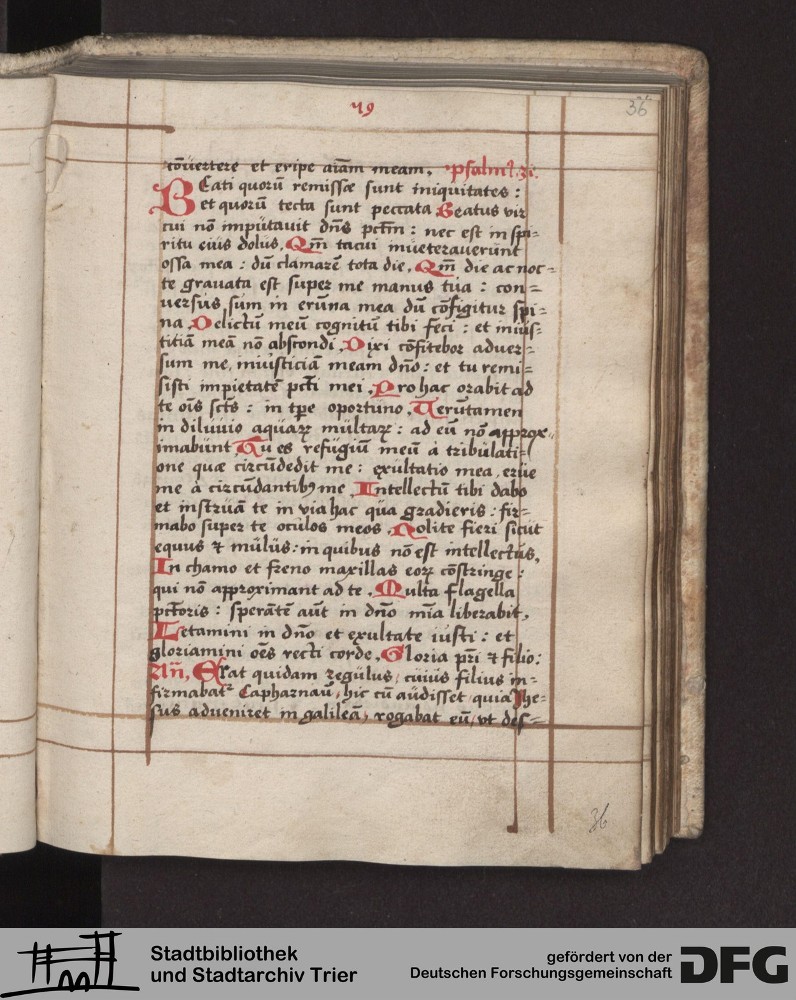 49
36
cōuertere et eripe aīam meam. Psalmꝰ. 31.
BEati quorū remissæ sunt iniquitates :
et quorū tecta sunt peccata Beatus vir
cui nō imputauit dn̄s pctm̄ : nec est in spi=
ritu eius dolus. Qm̄ tacui inueterauerunt
ossa mea : dū clamarē tota die. Qm̄ die ac noc=
te grauata est super me manus tua : con=
uersus sum in erūna mea dū cōfigitur spi=
na Delictū meū cognitū tibi feci : et inius=
titiā meā nō abscondi. Dixi cōfitebor aduer=
sum me iniusticiā meam dn̄o : et tu remi=
sisti impietatē pcti mei. Pro hac orabit ad
te oīs sctūs : in tp̄e oportuno. Uerūtamen
in diluuio aquaꝝ multaꝝ : ad eū nō approx=
imabunt Tu es refugiū meū à tribulati=
one quæ circūdedit me : exultatio mea erue
me à circūdantibꝯ me. Intellectū tibi dabo
et instruā te in via hac qua gradieris : fir=
mabo super te oculos meos. Nolite fieri sicut
equus ⁊ mulus : in quibus nō est intellectus,
In chamo et freno maxillas eoꝝ cōstringe :
qui nō approximant ad te. Multa flagella
pctōris : sperātē aūt in dn̄o mīa liberabit.
Letamini in dn̄o et exultate iusti : et
gloriamini oēs recti corde. Gloria pr̄i ⁊ filio :
An̄. Erat quidam regulus / cuius filius in=
firmabatᷣ Capharnaū, hic cū audisset quia Ihe=
sus adueniret in galileā, rogabat eū, vt des=
36
Stadtbibliothek
und Stadtarchiv Trier
gefördert von der
Deutschen Forschungsgemeinschaft
DFG